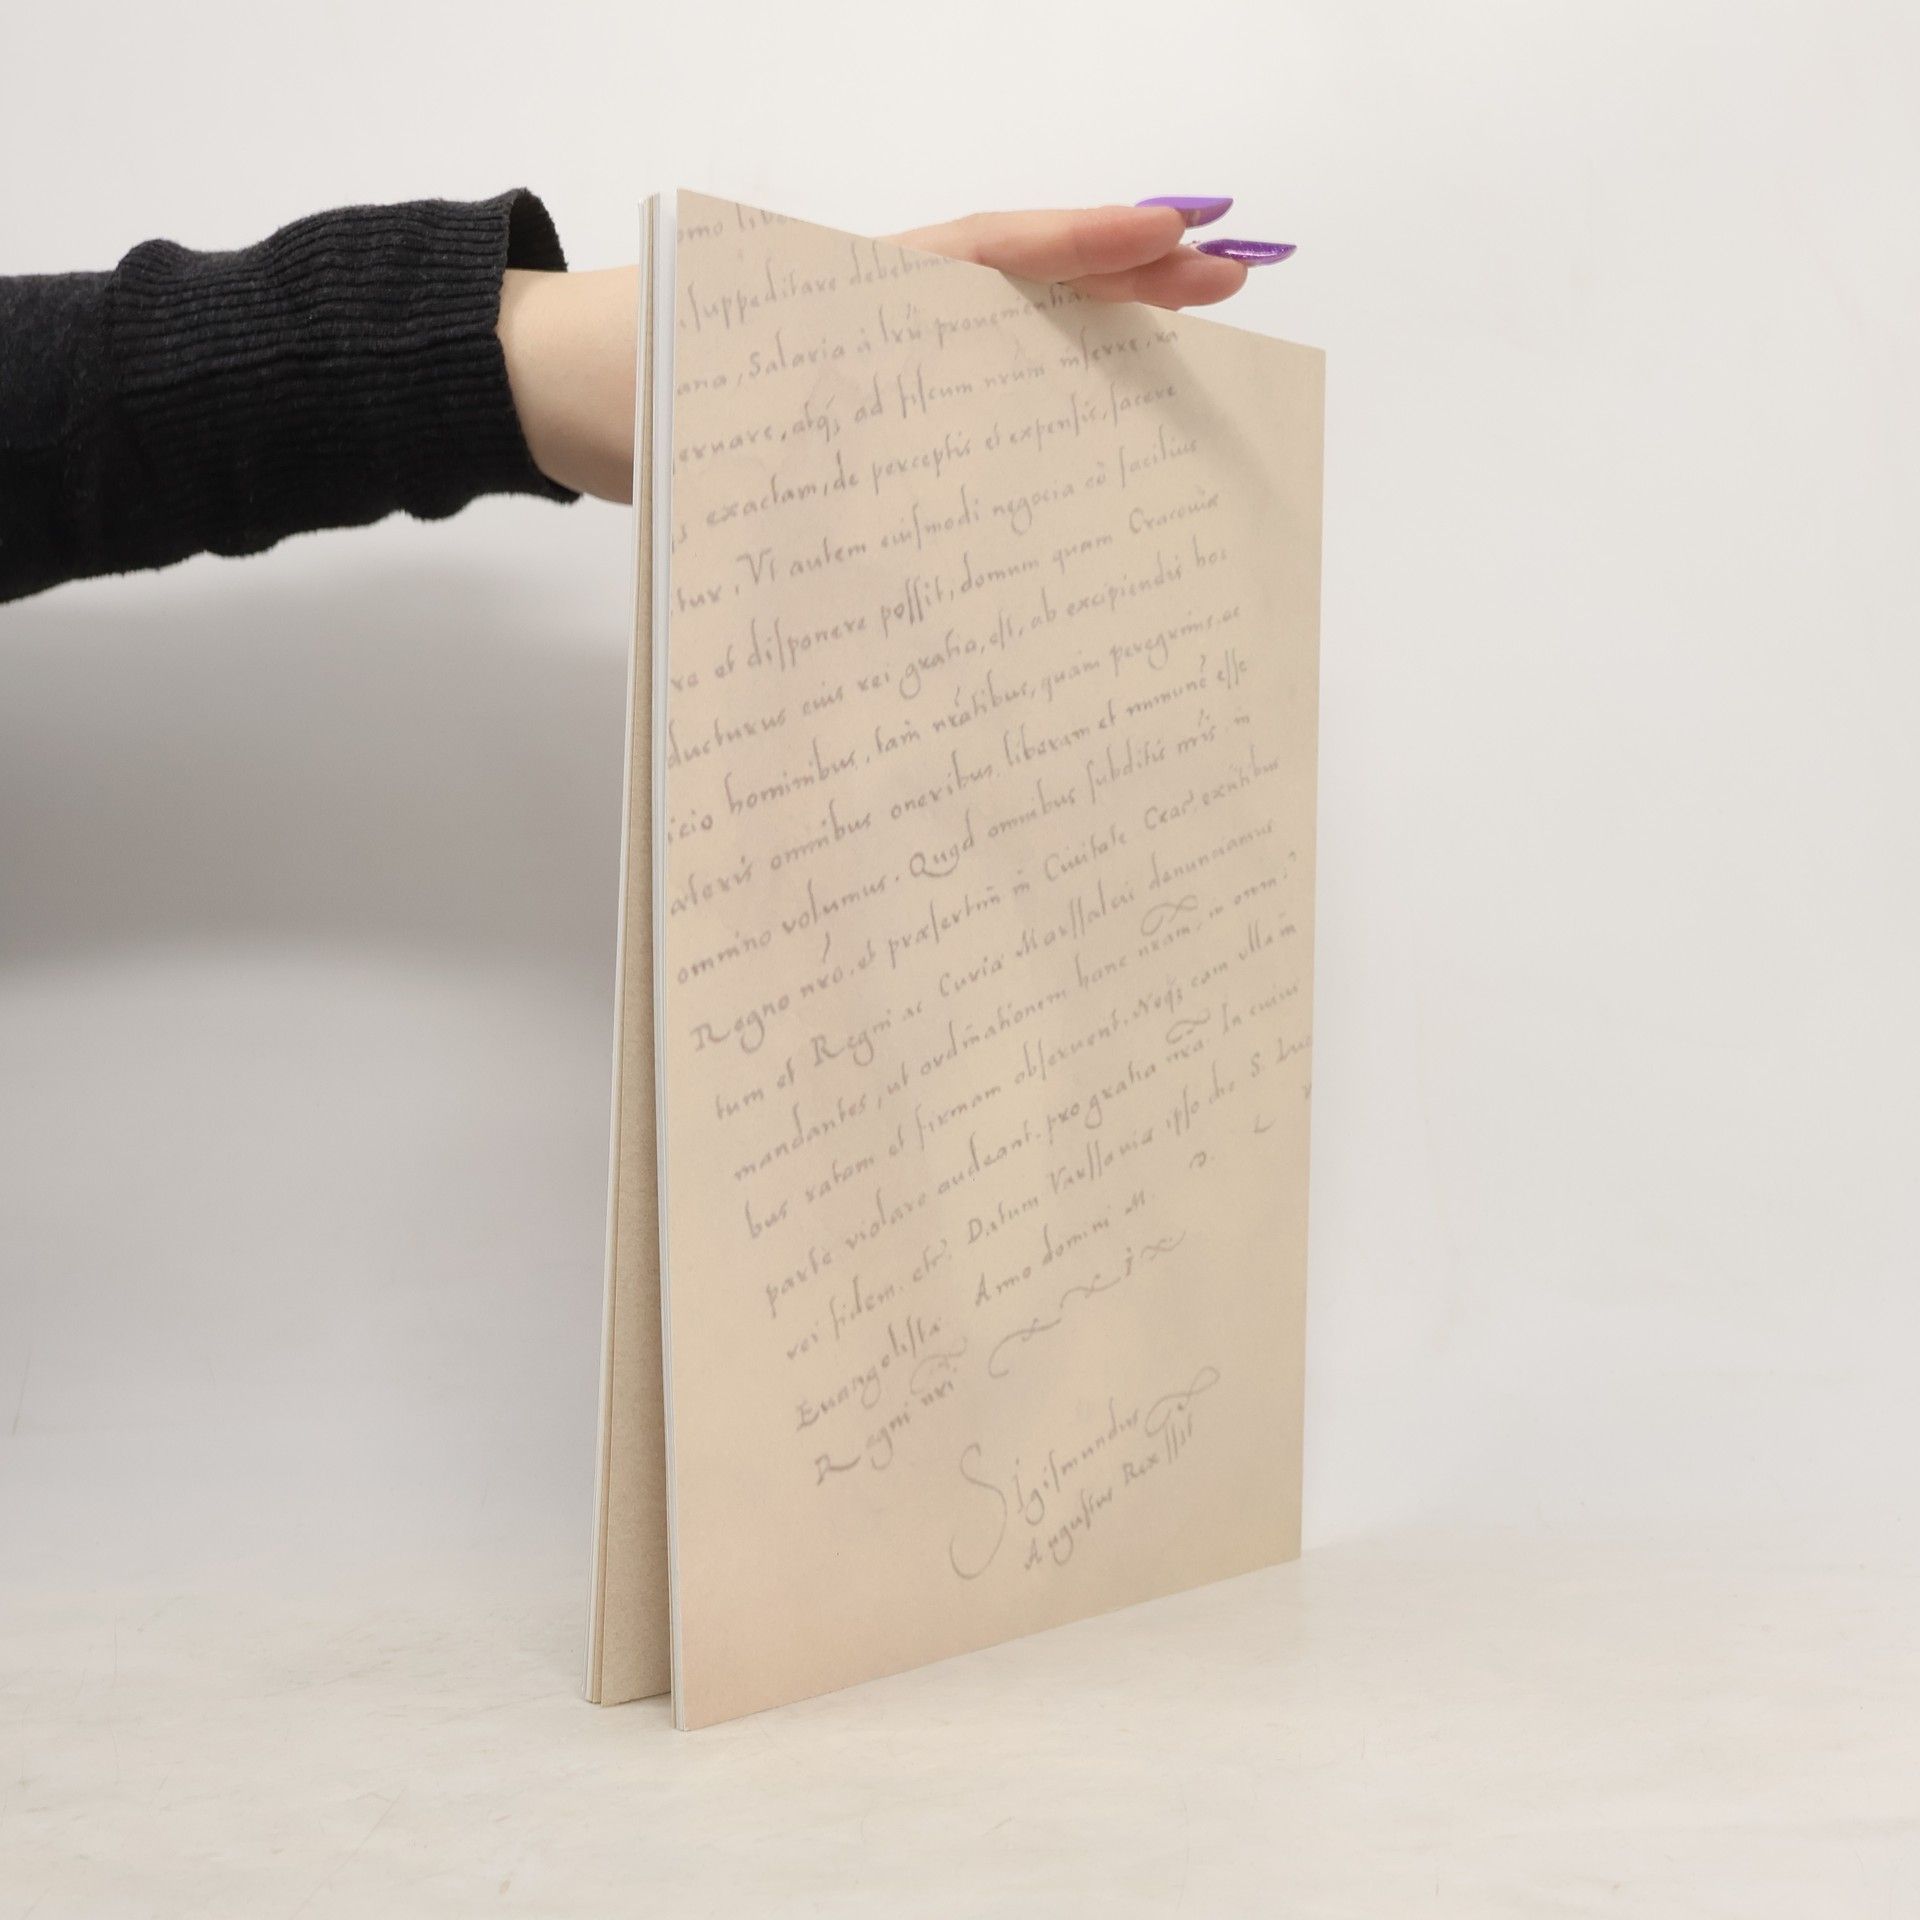 omo
suppeditare debebimus
ana, Salaria a lrũ provenientia
ernare, atq; ad fiscum nrũm inferre, ra
exactam, de perceptis et expensis, facere
tur, Vt autem eiusmodi negocia eò facilius
re et disponere possit, domum quam Cracoviæ
ducturus eius rei gratia, est, ab excipiendis hos
icio hominibus, tam nrãtibus, quam peregrinis, ac
ateris omnibus oneribus, liberam et immunẽ esse
omnino volumus. Quod omnibus subditis nris in
Regno nrõ, et præsertim in Civitate Crac. exñtibus
tum et Regni ac Curiæ Marssalcis denunciamus
mandantes, ut ordinationem hanc nrãm, in omni
bus ratam et firmam observent. Neq; eam ulla in
parte violare audeant. pro gratia nrã. In cuius
rei fidem. etc. Datum Varssaviæ ipso die S. Luc
Euangelistæ Anno domini M. D. L
Regni nri
Sigismundus
Augustus Rex ssit